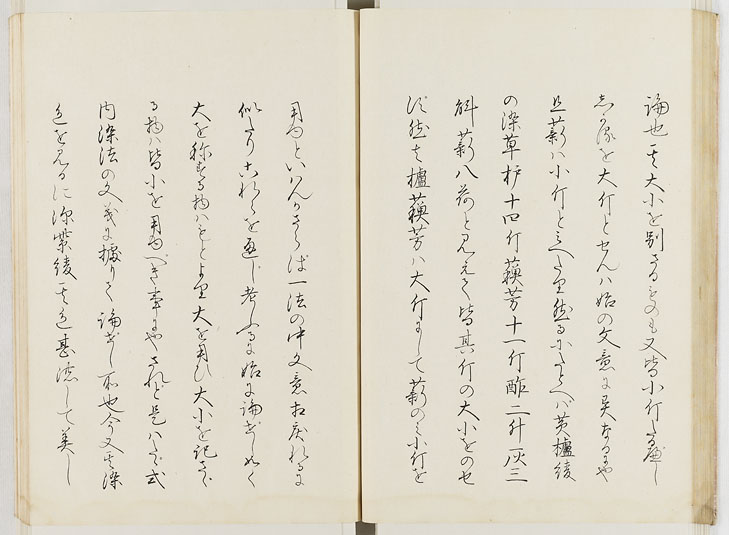 論也其大小を別さるものも又皆小斤なるへし
若深を大斤とせんハ始の文意に異なるにや
且薪ハ小斤とミへたり然るにたとへハ黄櫨綾
の染草櫨十四斤蘇芳十一斤酢二升灰三
斛薪八荷と見えて皆其斤の大小をのせ
す然を櫨蘇芳ハ大斤にして薪のミ小斤を
用ゐといハんかさらは一法の中文意相戻れるに
似たりこれらを通し考ふるに始に論せし如く
大を称する物ハもとより大を用ひ大小を記さゝ
る物ハ皆小を用ゐへき事にやされと是ハたゝ式
内染法の文義に據りて論せし所也今又其染
色を見るに深紫綾其色甚濃して美し